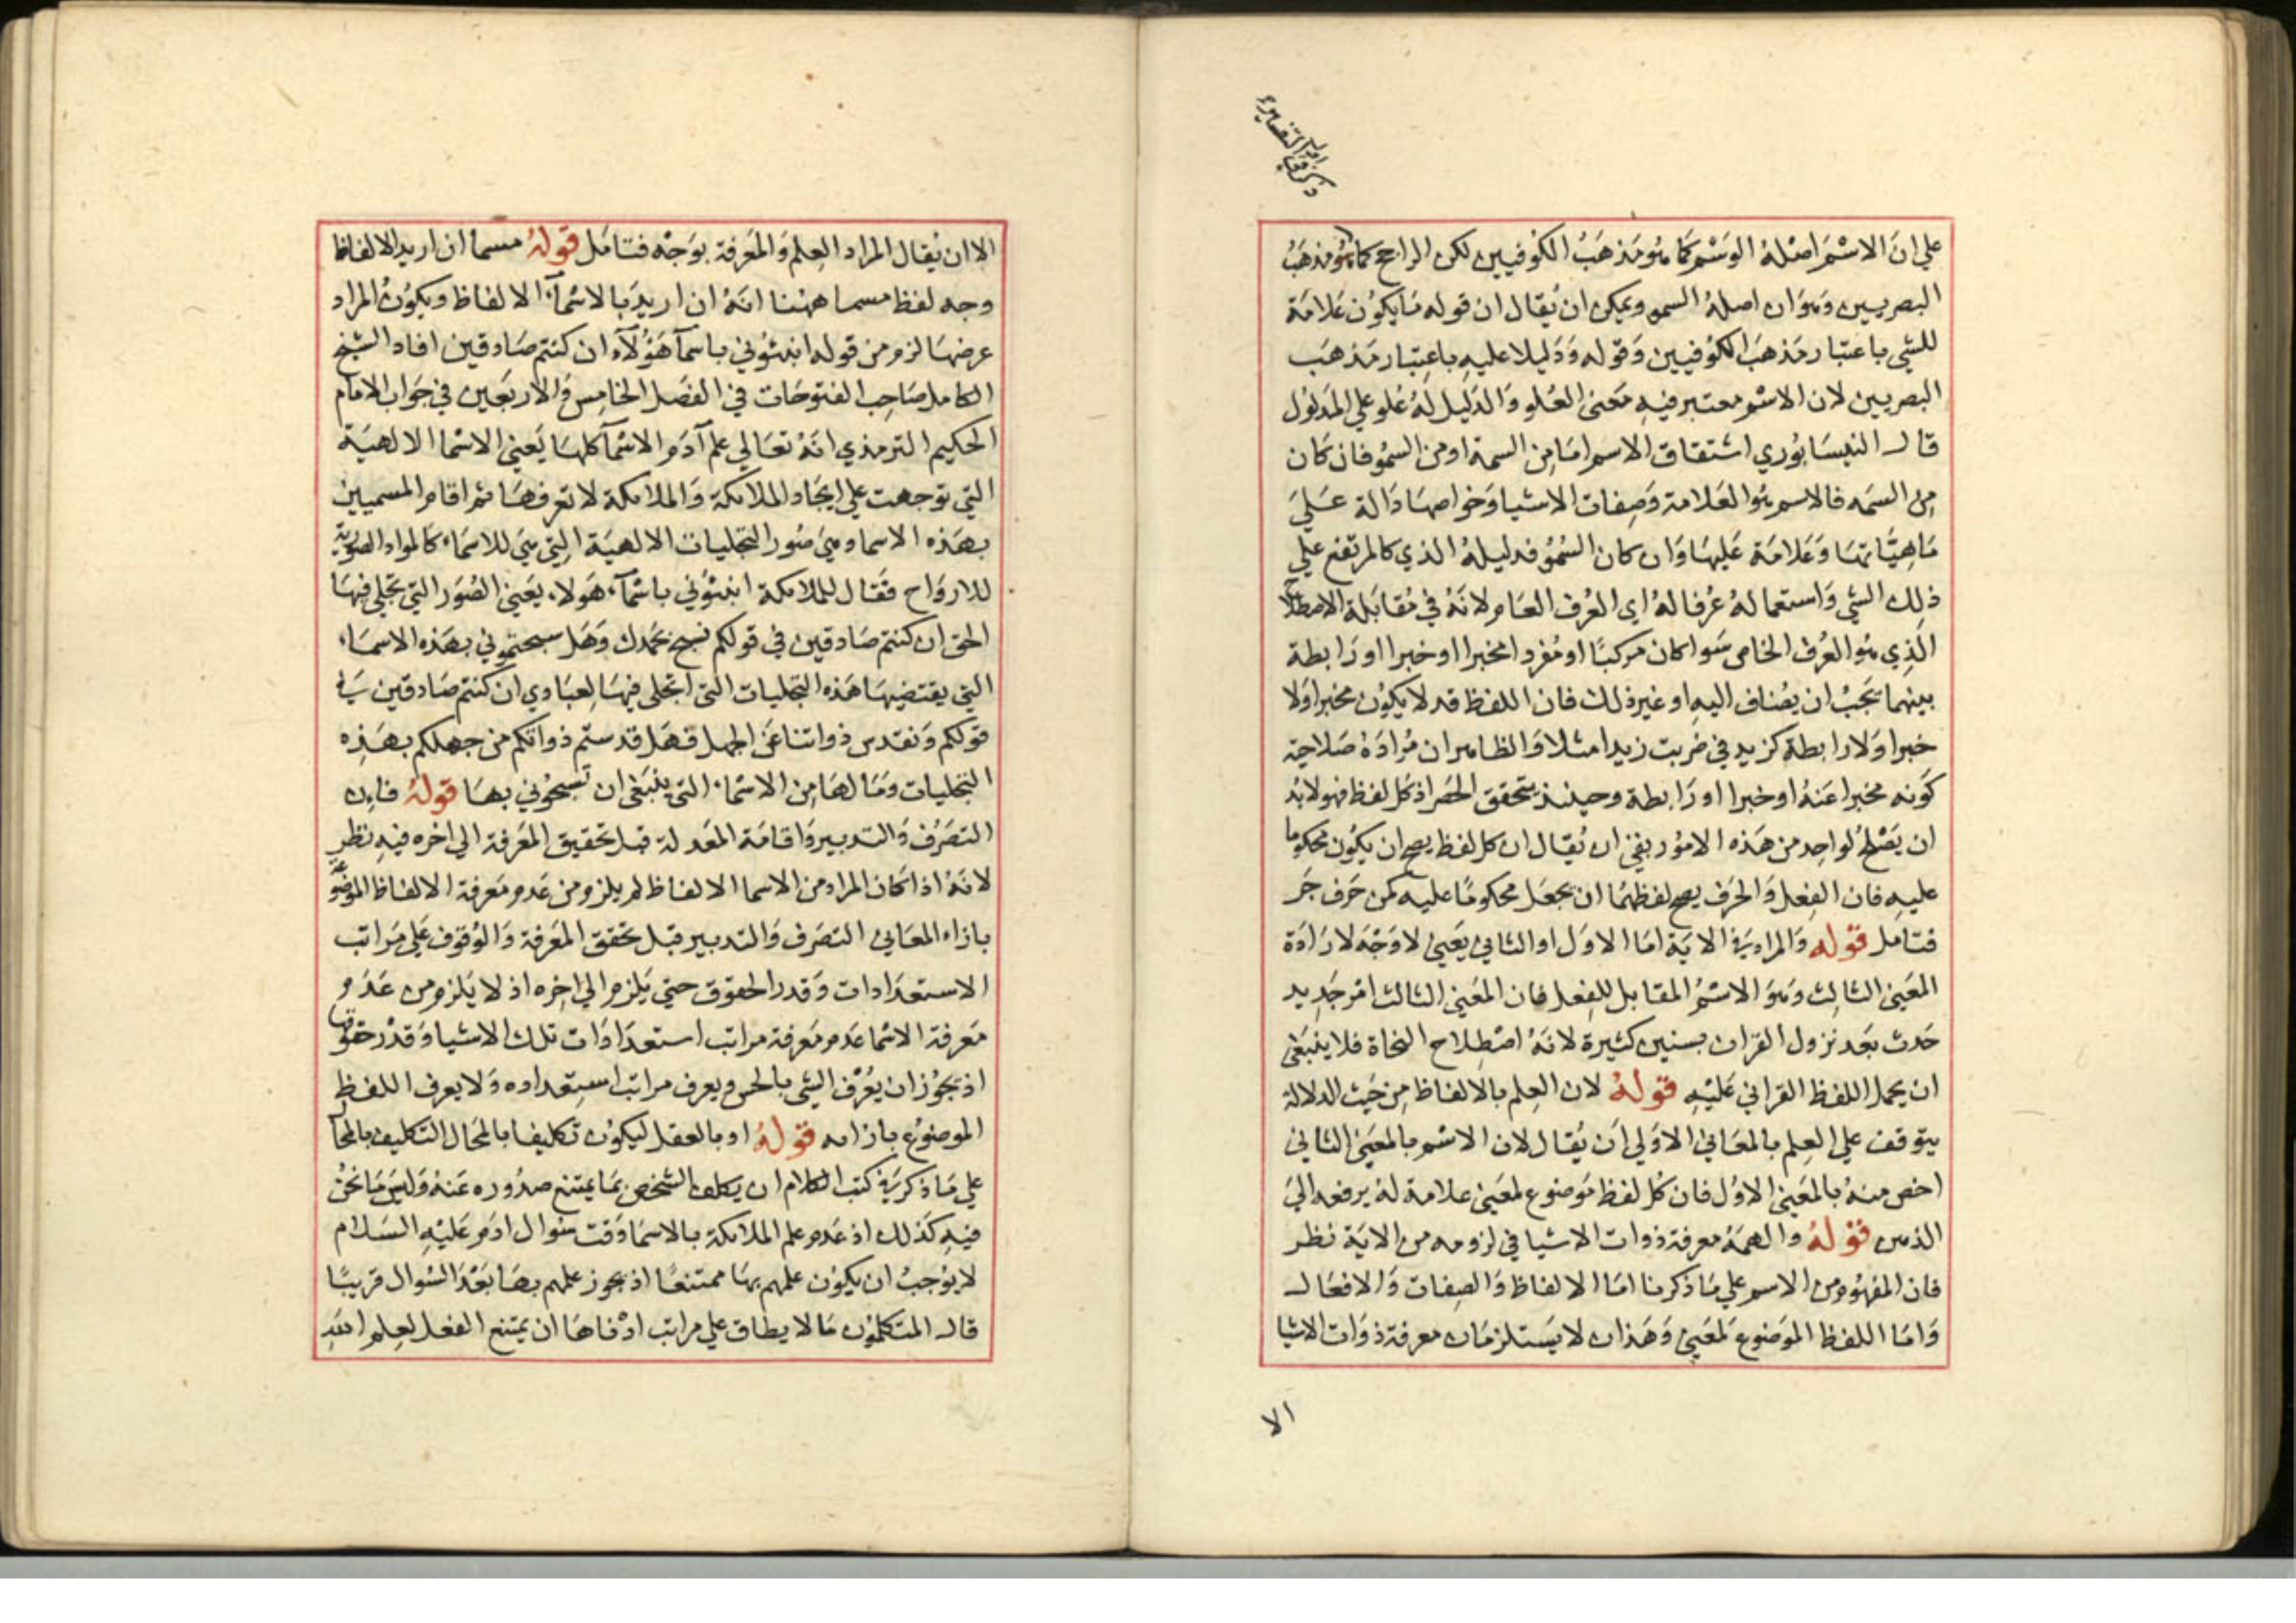 ذكر في اوايل التفسير
علي ان الاسْمَ اصْلهُ الوَسْم كمَا هُو مَذهَبُ الكوُفيين لكن الراجح كما هُو مذهَبُ
البصريين وَهوَ ان اصلهُ السمو ويمكن ان يُقال ان قوله مَا يكوُن عَلامَة
للشي باعتبار مَذهَب الكوُفيين وَقوله وَدَليلا عليهِ باعتِبار مَذهَب
البصريين لان الاسْم معتبر فيهِ مَعنى العُلو وَالدَليل لهُ عُلو علي المَدلوُل
قال النيسَابوُري اشتقاق الاسم امَا مِن السمة او من السموُ فان كَان
مِن السمَه فالاسم هُوَ العَلامة وَصِفات الاشيا وَخواصهَا دَالة عَلَي
مَاهِيَّاتهَا وَعَلامَة عَليهَا وَان كان السُموُ فدليلهُ الذي كالمرتفع علي
ذلِك الشي وَاستعمالهُ عُرفا لهُ اي العُرف العَام لانهُ في مُقابَلة الاصطلاح
الذِي هُو العُرف الخاص سَوا كان مركبًا او مُفردا مخبرا او خبرا او رَابطة
بينهما يَجَبُ ان يُضاف اليهِ او غير ذلك فان اللفظ قد لا يكوُن مخبرا وَلا
خبرا وَلا رابطة كزيد في ضربت زيدا مثلا وَالظاهر ان مُرادَهُ صَلاحية
كوَنه مخبرا عَنهُ او خبرا او رَابطة وحينئذ يتحقق الحصَر اذ كل لفظ فهو لا بُد
ان يَصْلحُ لواحِد من هَذه الامُور بقي ان يُقال ان كل لفظ يصح ان يكوُن محكوما
عليهِ فان الفِعل وَالحَرف يصح لفظهمَا ان يجعَل محكومًا عليه كمن حَرف جَر
فتامل قوله وَالمراد في الايَة امَا الاوَل او الثاني يَعني لا وَجَه لارَادَة
المعَني الثالِث وَهوَ الاسْمُ المقابل للفِعل فان المعَني الثالث امْر جَديد
حَدث بَعد نزول القران بسنين كثيرة لانهُ اصْطِلاح النحاة فلا ينبَغي
ان يحمل اللفظ القراني عَليْهِ قولهُ لان العِلم بالالفاظ مِن حَيث الدلالة
يتوقف علي العِلم بالمعَاني الاوَلي اَن يُقال لان الاسْم بالمعَني الثاني
اخص منهُ بالمعَني الاوُل فان كل لفظ مَوضوع لمعَني علامة لهُ يرفعه الي
الذهن قولهُ والهمَهُ معرفة ذوات الاشيا في لزومه من الايَة نظر
فان المفهُوم من الاسم علي مَا ذكرنا امَا الالفاظ وَالصِفات وَالافعَال
وَامَا اللفظ الموَضوُع لمعَني وَهَذان لا يسَتلزمَان معرفة ذوَات الاشيا
الا
الا ان يُقال المراد العِلم وَالمَعرفة بوَجْه فتامَل قولهُ مسما ان اريد الالفاظ
وجه لفظ مسما ههُنا انهُ ان اريدَ بالاسْمآء الالفاظ ويكوُن المراد
عرضهَا لزم من قوله انبئوُني باسمآ هَؤُلآء ان كنتم صَادقين افاد الشيخ
الكامل صَاحِب الفتوُحَات في الفصَل الخامِس وَالاربَعين في جَواب الامَام
الحَكيم الترمذي انهُ تعَالي علم آدَم الاسْمآ كلهَا يَعني الاسْما الالهيَة
التي توجهت علي ايجَاد الملائكة وَالملائكة لا تعرفهَا ثم اقام المسميين
بهَذه الاسما وهيَ صُور التجليات الالهيَة التي هي للاسمَاء كالمواد الصوُرية
للارواح فقال للملائكة انبئوُني باسْمآء هَولاء يَعني الصُوَر التي تجَلي فيهَا
الحَق ان كنتم صَادقين في قولكم نسبح بحَمدك وَهَل سبحتموُني بهَذه الاسمَاء
التي يقتضيهَا هَذه التجليات التي اتجلى فيهَا لعِبَادي ان كنتم صَادقين في
قولكم وَنقدس ذواتنا عَن الجهل فهَل قدستم ذواتكم من جهلكم بهَذِه
التجليات وَمَا لهَا مِن الاسْمَاء التي ينبَغي ان تسبحُوني بهَا قولهُ فان
التصَرُف وَالتدبير وَاقامَة المعَدلة قبل تحَقيق المَعرفة الي اخره فيهِ نظر
لانهُ اذا كَان المراد من الاسما الالفاظ لم يلزم من عَدم مَعرفة الالفاظ الموَضوُعَة
بازاء المعَاني التصَرف وَالتدبير قبل تحَقق المَعرفة وَالوُقوف عَلي مَراتب
الاستعدَادات وَقدر الحقوق حتي يَلزم الي اخِره اذ لا يَلزم من عَدَم
مَعرفة الاسْما عَدم مَعرفة مراتب استعدَادَات تلك الاشيا وَقدْر حقوقها
اذ يجوُز ان يُعْرف الشي بالحس ويعرف مراتب استِعداده وَلا يعرف اللفظ
الموضوُع بازائه قولهُ او بالعقل ليكوُن تكليفا بالمحَال التكليف بالمحَال
علي مَا ذكر في كتب الكلام ان يكلف الشخص بمَا يمتنع صدُوره عَنهُ وَليسَ مَا نحَنُ
فيهِ كذَلك اذ عَدم علم الملائكة بالاسمَا وَقت سُوال ادَم عَليْهِ السَلام
لا يوُجبُ ان يكوُن علمهم بهَا ممتنعًا اذ يجوز علمهم بهَا بَعْدَ السُوال قريبًا
قال المتكلموُن مَا لا يطاق علي مراتب ادْناهَا ان يمتنع الفعل لعِلم اللهِ